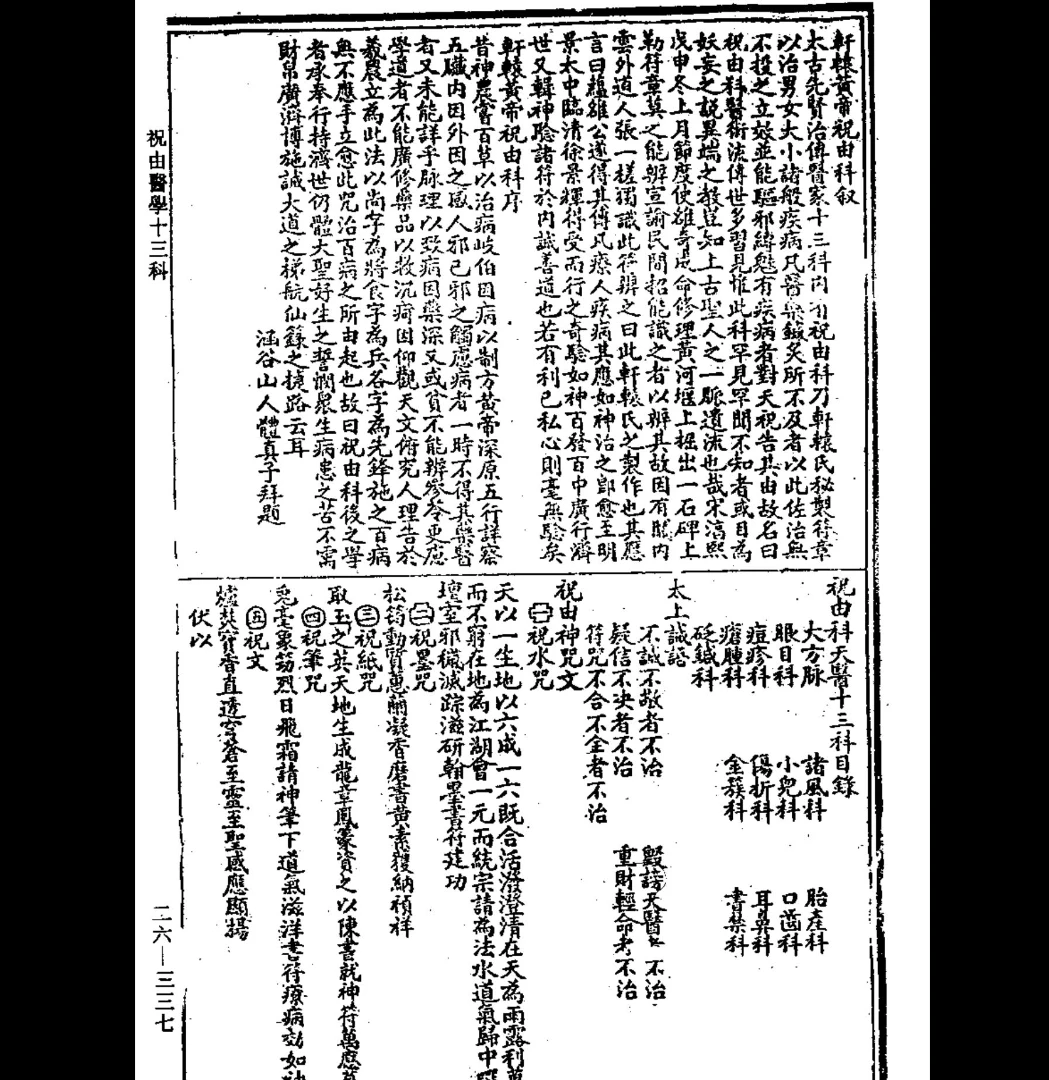 軒轅黃帝祝由科叙
太古先賢治傳醫家十三科內有祝由科乃軒轅氏秘製符章
以治男女大小諸般疾病凡醫藥鍼炙所不及者以此佐治無
不投之立效並能驅邪縛魅有疾病者對天祝告其由故名曰
祝由科醫術流傳世多習見惟此科罕見罕聞不知者或目為
妖妄之說異端之教豈知上古聖人之一脈遺流也哉宋淳熙
戊申冬上月節度使雄奇成命修理黃河堰上掘出一石碑上
勒符章莫之能辨宣諭民間招能識之者以辨其故因有閒內
雲外道人張一槎獨識此符辨之曰此軒轅氏之製作也其應
言曰蘊雄公遂得其傳凡療人疾病其應如神治之即愈至明
景太中臨清徐景輝得受而行之奇驗如神百發百中廣行濟
世又輯神驗諸符於內誠善道也若有利已私心則毫無驗矣
軒轅黃帝祝由科序
昔神農嘗百草以治病岐伯因病以制方黃帝深原五行詳察
五臟內因外因之感人邪己邪之觸慮病者一時不得其藥醫
者又未能詳乎脉理以致病因藥深又或貧不能辦參苓更慮
學道者不能廣修藥品以救沉痾因仰觀天文俯究人理告於
羲農立為此法以尚字為將食字為兵各字為先鋒施之百病
無不應手立愈此咒治百病之所由起也故曰祝由科後之學
者承奉行持濟世仍體大聖好生之誓憫眾生病患之苦不需
財帛廣濟博施誠大道之梯航仙籙之捷路云耳
涵谷山人體真子拜題
祝由科天醫十三科目錄
大方脉 諸風科 胎產科
眼目科 小兒科 口齒科
痘疹科 傷折科 耳鼻科
瘡腫科 金簇科 書禁科
砭鍼科
太上誡語
不誠不敬者不治 毀謗天醫者不治
疑信不決者不治 重財輕命者不治
符咒不合不全者不治
祝由神咒文
㊀祝水咒
天以一生地以六成一六既合活潑澄清在天為雨露利萬
而不窮在地為江湖會一元而統宗請為法水道氣歸中
壇室邪穢滅踪滋研翰墨書符建功
㊁祝墨咒
松筠勳質蕙蘭凝香磨書黃素獲納禎祥
㊂祝紙咒
取玉之英天地生成龍章鳳篆資之以陳書就神符萬應
㊃祝筆咒
兔毫象笏烈日飛霜請神筆下道氣滋洋書符療病効如神
㊄祝文
爐焚寶香直透穹蒼至靈至聖感應顯揚
伏以
祝由醫學十三科
二六—三三七